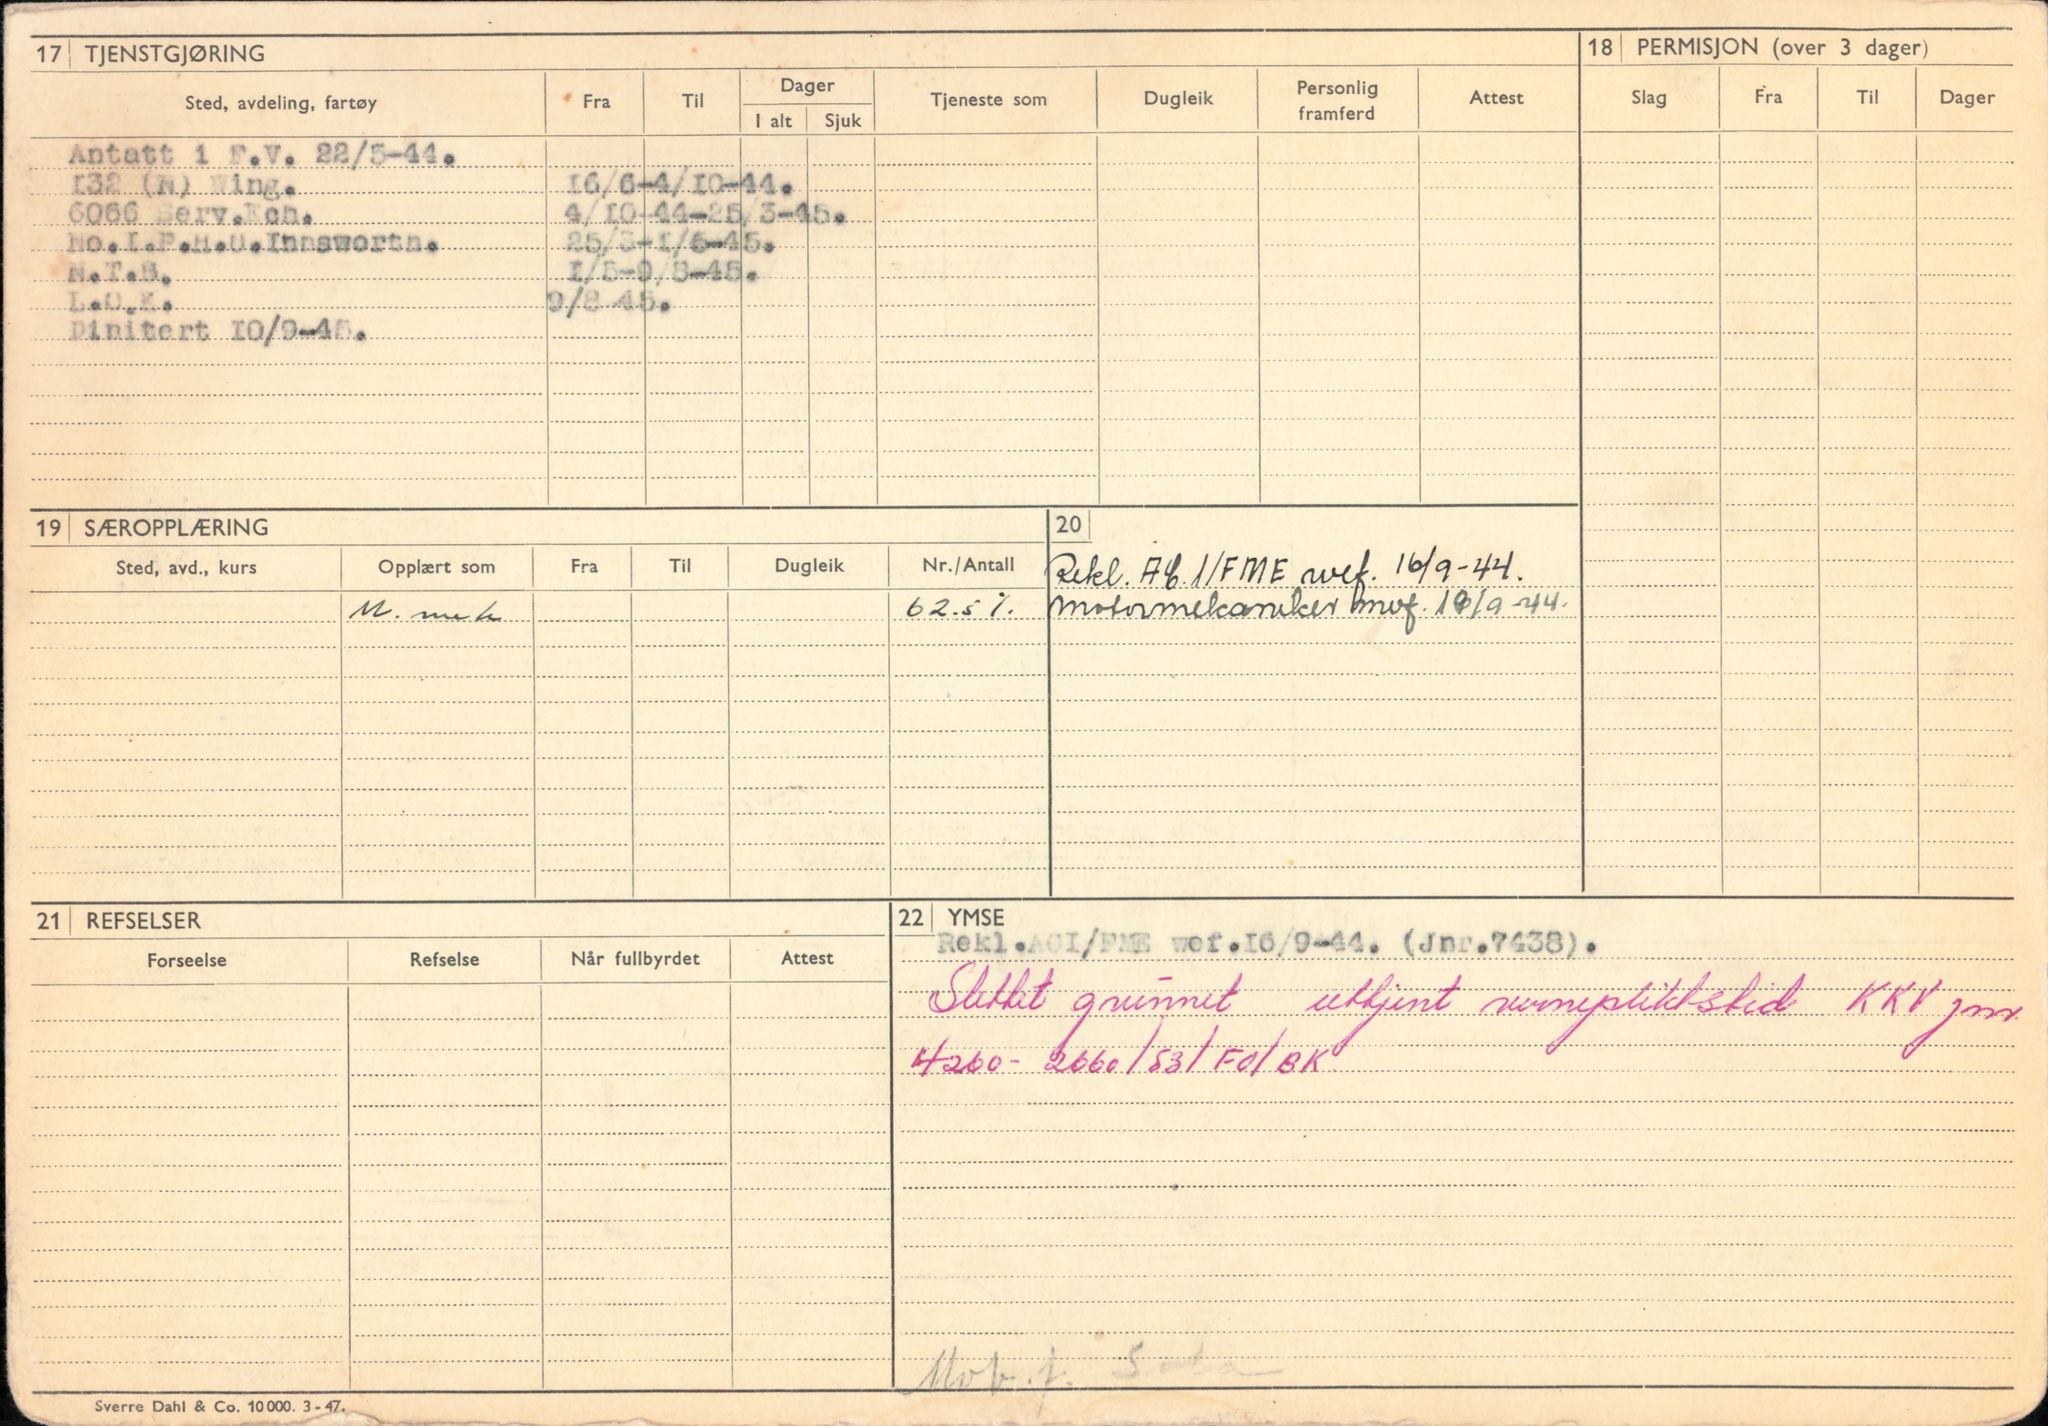 17 TJENSTGJØRING
Sted, avdeling, fartøy Fra Til Dager I alt Sjuk Tjeneste som Dugleik Personlig framferd Attest
Antatt i F.V. 22/5-44.
132 (N) Wing. 16/6-4/10-44.
6066 Serv.Ech. 4/10-44-25/3-45.
No.I.P.H.U.Innsworth. 25/3-1/5-45.
N.T.B. 1/5-9/8-45.
L.O.K. 9/8 45.
Dimitert 10/9-45.
18 PERMISJON (over 3 dager)
Slag Fra Til Dager
19 SÆROPPLÆRING
Sted, avd., kurs Opplært som Fra Til Dugleik Nr./Antall
M. mek 62.5%.
20
Rekl. AC 1/FME wef. 16/9-44.
Motormekaniker mvf. 18/9-44.
21 REFSELSER
Forseelse Refselse Når fullbyrdet Attest
22 YMSE
Rekl.ACI/FME wef.16/9-44. (Jnr.7438).
Slettet grunnet uttjent verneplikttid KKV jnr.
4260- 2660/53/FO/BK
Mob.f.
Sverre Dahl & Co. 10000. 3-47.